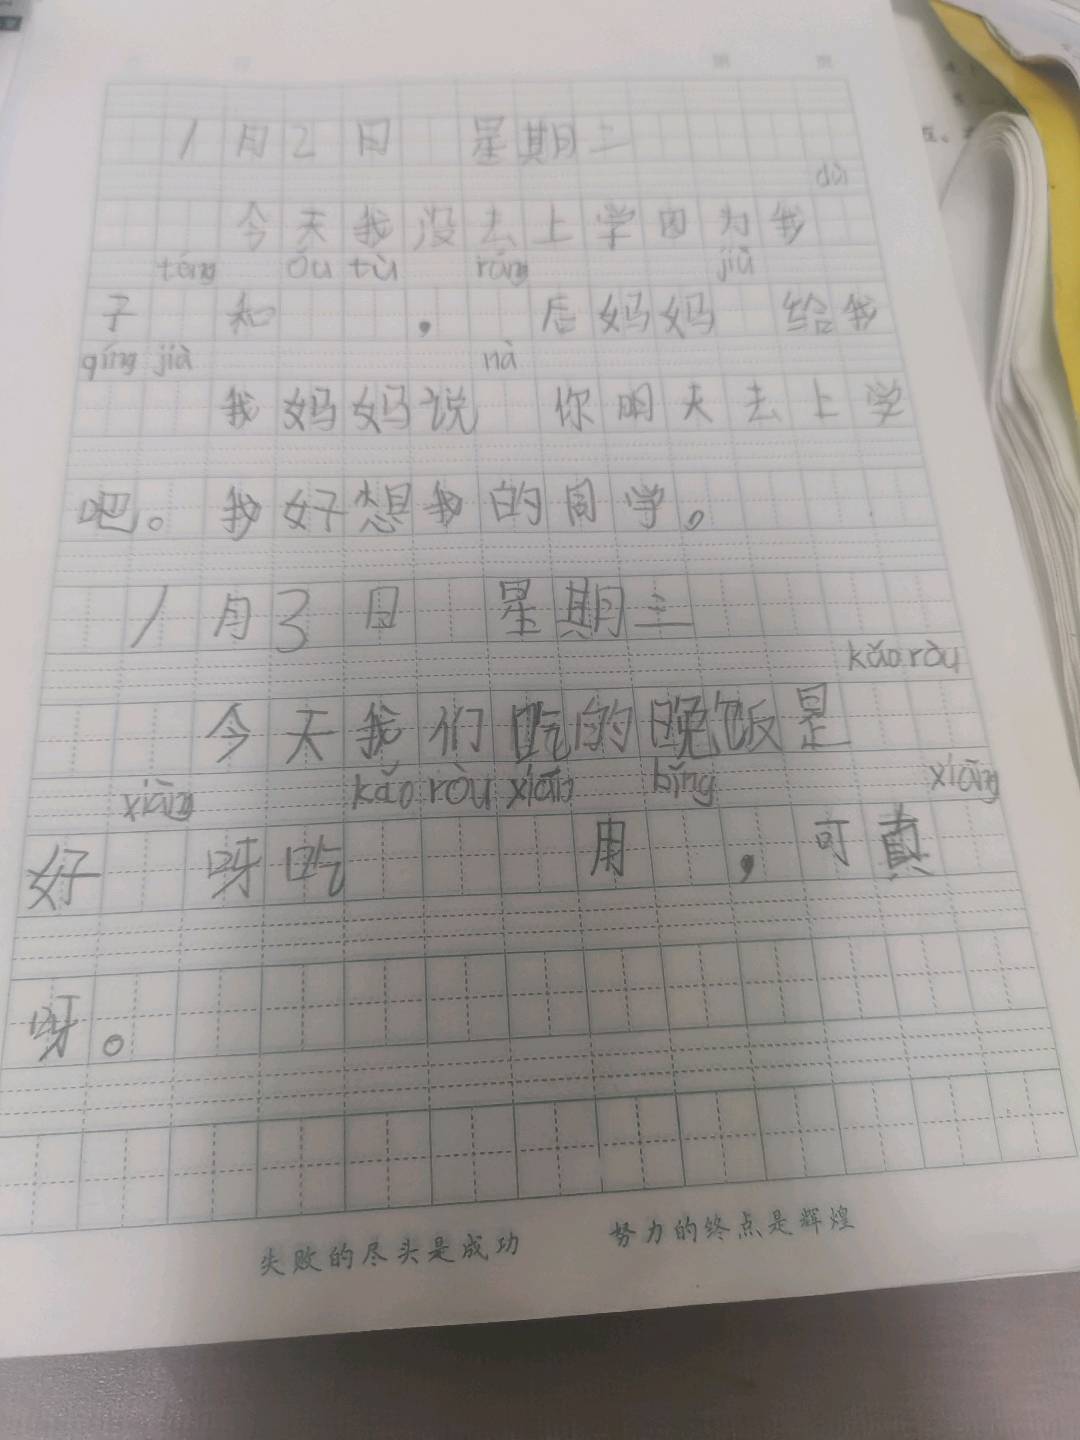 1月2日 星期二
dù
今天我没去上学因为我
téng ǒu tù ráng jiù
子 和 , 后妈妈 给我
qíng jià nà
我妈妈说 你明天去上学
吧。我好想我的同学。
1月3日 星期三
kǎo ròu
今天我们吃的晚饭是
xiāng kǎo ròu xiān bǐng xiāng
好 呀吃 用 ,可真
呀。
失败的尽头是成功 努力的终点是辉煌